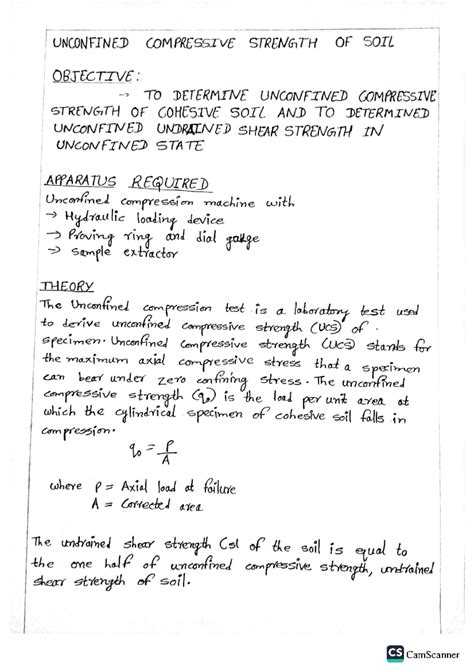 UNCONFINED COMPRESSIVE STRENGTH OF SOIL
OBJECTIVE:
→ TO DETERMINE UNCONFINED COMPRESSIVE
STRENGTH OF COHESIVE SOIL AND TO DETERMINED
UNCONFINED UNDRAINED SHEAR STRENGTH IN
UNCONFINED STATE
APPARATUS REQUIRED
Unconfined compression machine with
→ Hydraulic loading device
→ Proving ring and dial gauge
→ Sample extractor
THEORY
The Unconfined compression test is a laboratory test used
to derive unconfined compressive strength (UCS) of
specimen. Unconfined compressive strength (UCS) stands for
the maximum axial compressive stress that a specimen
can bear under zero confining stress. The unconfined
compressive strength (q₀) is the load per unit area at
which the cylindrical specimen of cohesive soil falls in
compression.
q₀ = P/A
where P = Axial load at failure
A = Corrected area
The undrained shear strength (s) of the soil is equal to
the one half of unconfined compressive strength, undrained
shear strength of soil.
CS CamScanner